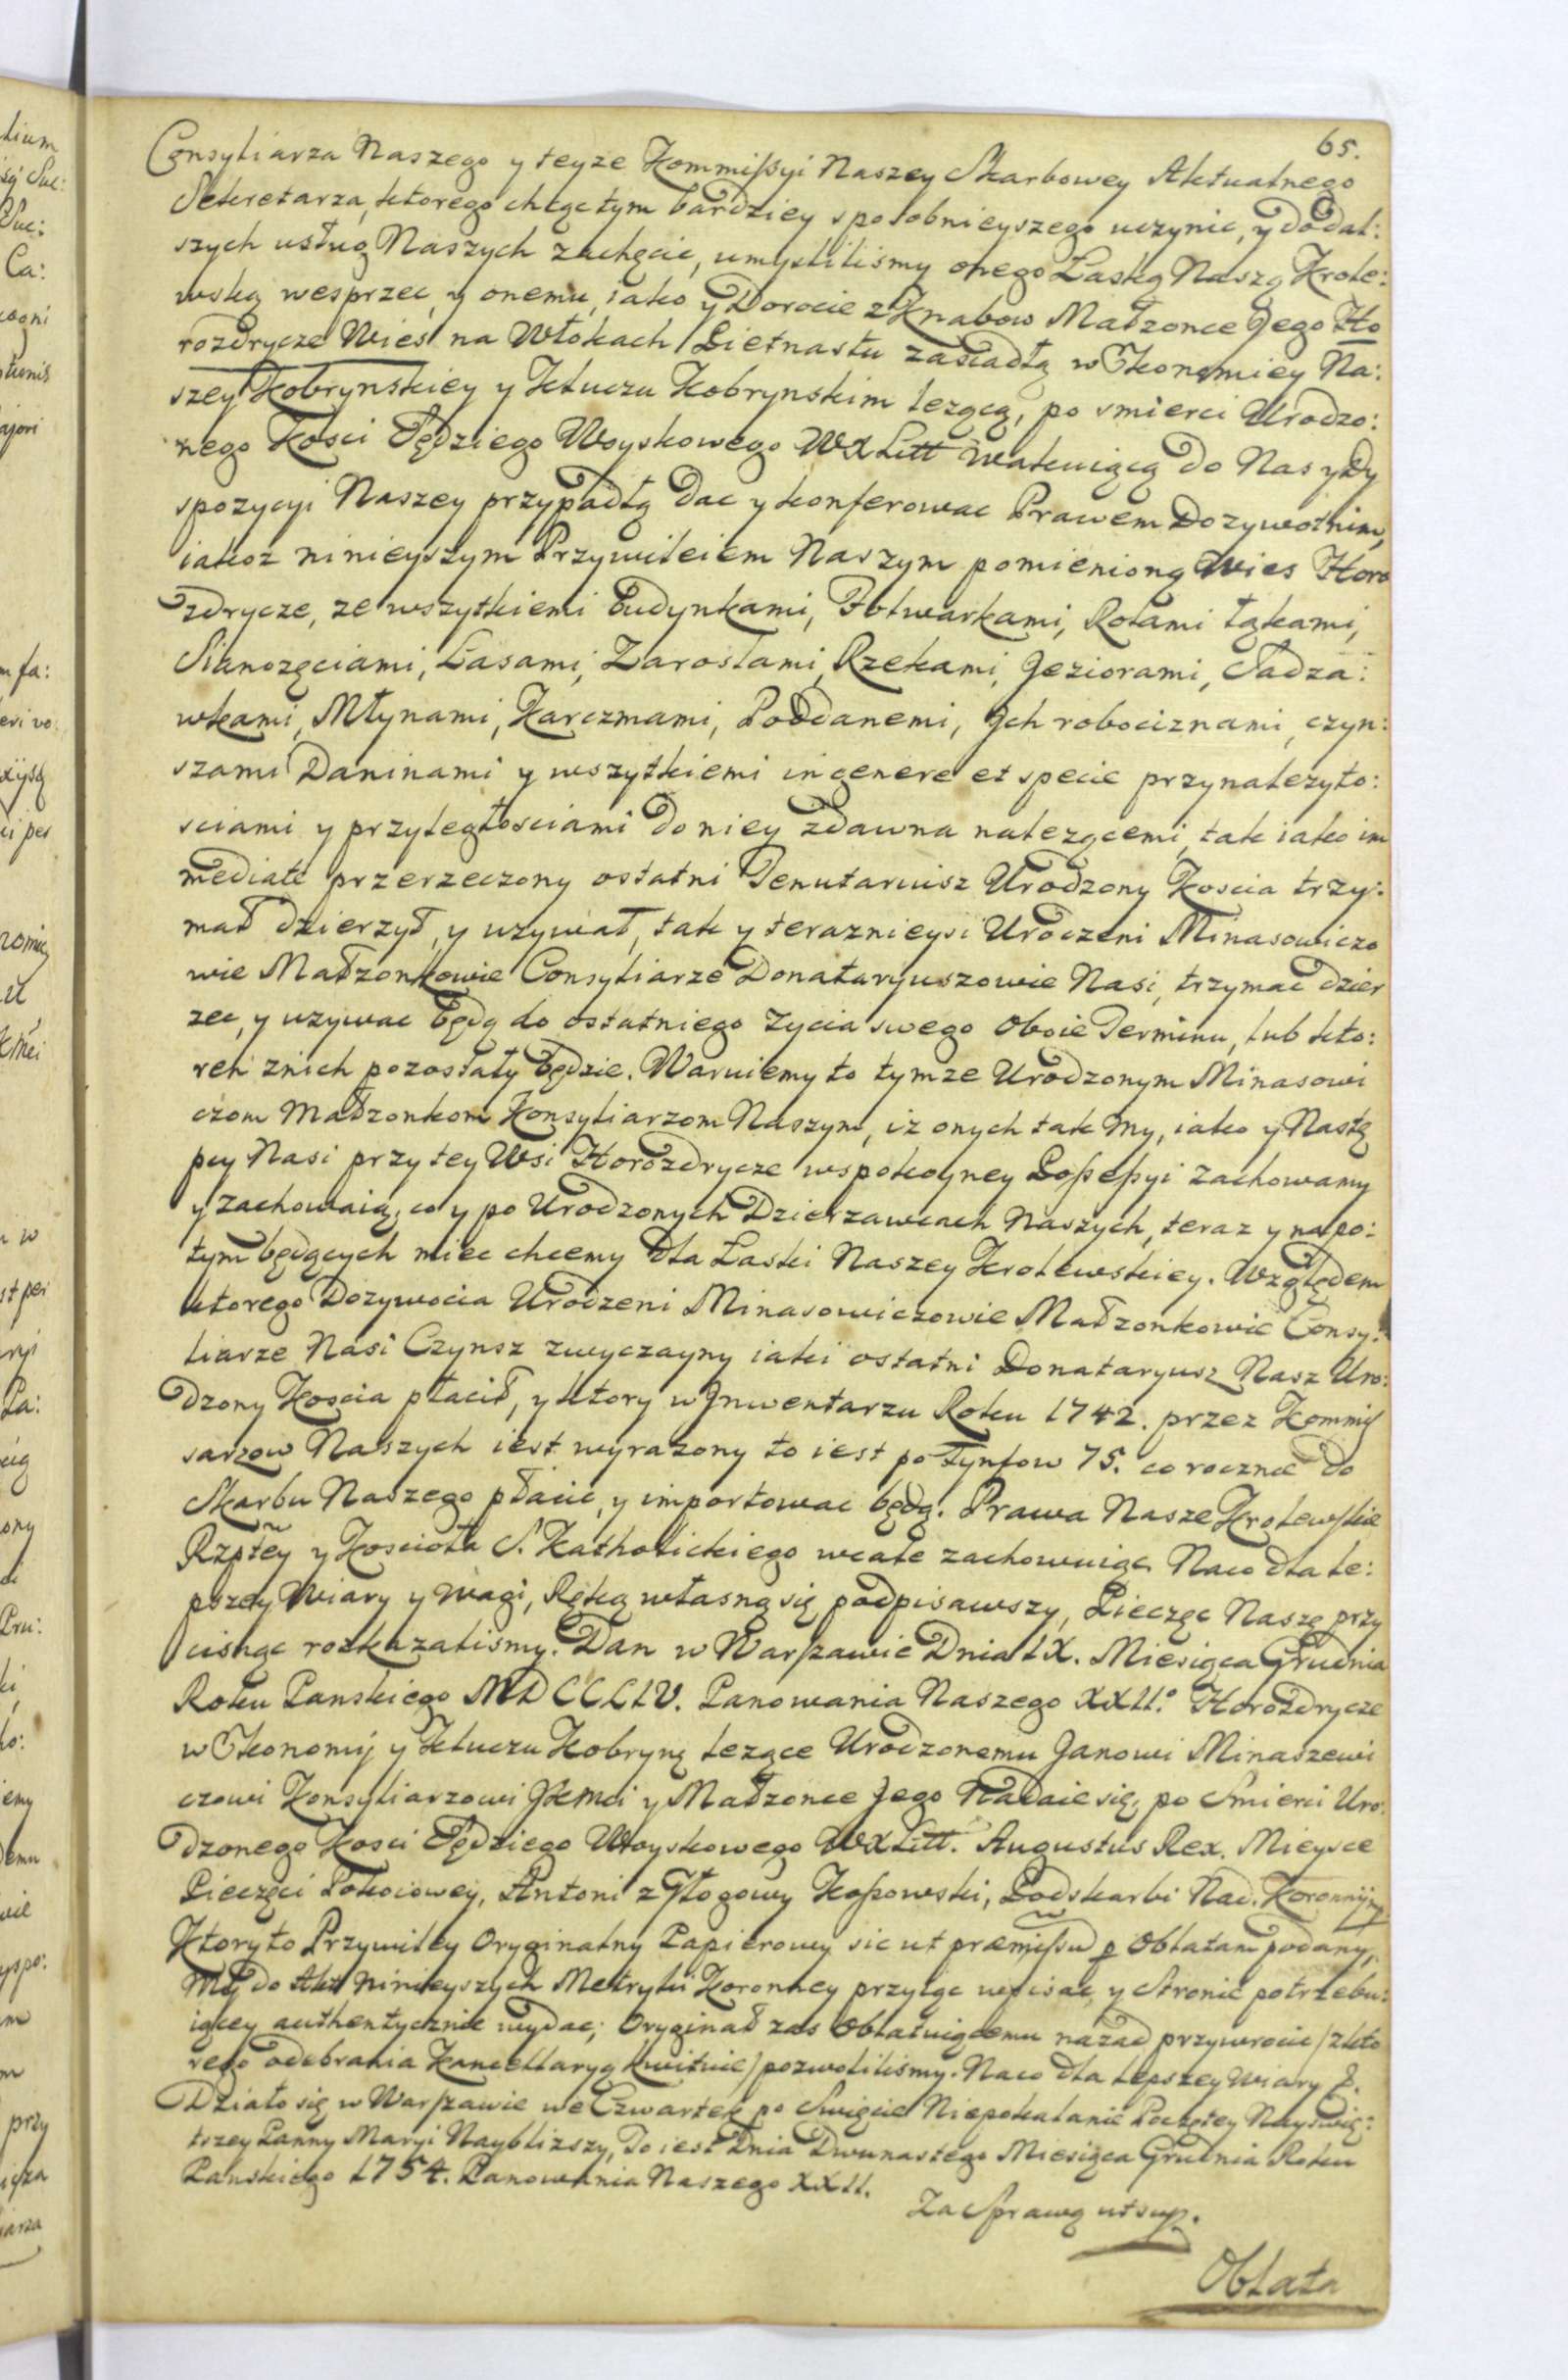 65.
Consyliarza Naszego y teyze Kommissyi Naszey Skarbowey Aktualnego
Sekretarza, ktorego chcąc tym bardziey sposobnieyszego uczynic, y do dal:
szych usług Naszych zachęcic, umyslilismy onego Łaską Naszą Krole:
wską wesprzec, y onemu, iako y Dorocie z Knabow Małzonce Jego Ho
rozdrycze Wies na Włokach Pietnastu zasiadłą w Ekonomiey Na:
szey Kobrynskiey y Kluczu Kobrynskim lezącą, po smierci Urodzo:
nego Kosci Sędziego Woyskowego WXLitt wakuiącą do Nas y Dy
spozycyi Naszey przypadłą dac y konferowac Prawem Dozywotnim,
iakoz ninieyszym Przywileiem Naszym pomienioną Wies Horo
zdrycze, ze wszytkiemi Budynkami, Folwarkami, Rolami łąkami,
Sianozęciami, Lasami, Zaroslami, Rzekami, Jeziorami, Sadza:
wkami, Młynami, Karczmami, Poddanemi, Jch robociznami, czyn:
szami Daninami y wszytkiemi in genere et specie przynalezyto:
sciami y przyległosciami do niey zdawna nalezącemi, tak iako im
mediate przerzeczony ostatni Tenutariusz Urodzony Koscia trzy:
mał dzierzył, y uzywał, tak y teraznieysi Urodzeni Minasowiczo
wie Małzonkowie Consyliarze Donataryuszowie Nasi, trzymac dzier
zec, y uzywac będą do ostatniego zycia swego oboie Terminu, lub kto:
reh znich pozostały będzie. Waruiemy to tymze Urodzonym Minasowi
czom Małzonkom Konsyliarzom Naszym, iz onych tak My, iako y Nastę
pcy Nasi przy tey Wsi Horozdrycze wspokoyney Possessyi zachowamy
y zachowaią, co y po Urodzonych Dzierzawcach Naszych, teraz y napo:
tym będących miec chcemy dla Łaski Naszey Krolewskiey. Względem
ktorego Dozywocia Urodzeni Minasowiczowie Małzonkowie Consy:
liarze Nasi Czynsz zwyczayny iaki ostatni Donataryusz Nasz Uro:
dzony Koscia płacił, y ktory w Jnwentarzu Roku 1742. przez Kommis
sarzow Naszych iest wyrazony to iest po Tynfow 75. co rocznie do
Skarbu Naszego płacic, y importowac będą. Prawa Nasze Krolewskie
Rzpłey y Koscioła S. Katholickiego wcale zachowuiąc. Naco dla le:
pszey Wiary y Wagi, Ręką własną się podpisawszy, Pieczęc Naszę przy
cisnąc rozkazalismy. Dan w Warszawie Dnia IX. Miesiąca Grudnia
Roku Panskiego MDCCLIV. Panowania Naszego XXII.° Horozdrycze
w Ekonomij y Kluczu Kobryną lezące Urodzonemu Janowi Minaszewi
czowi Konsyliarzowi JKMci y Małzonce Jego Nadaie się, po Smierci Uro:
dzonego Kosci Sędziego Woyskowego WXLitt. Augustus Rex. Mieysce
Pieczęci Pokoiowey, Antoni z Głogowy Kossowski, Podskarbi Nad. Koronnij mp
Ktory to Przywiley Oryginalny Papierowy sic ut præmissũ p Oblatam podany,
My do Akt Ninieyszych Metryki Koronney przyląc wpisac, y Stronie potrzebu:
iącey authentycznie wydac; Oryginał zas Oblatuiącemu nazad przywrocic /z kto
rego odebrania Kancellaryą kwituie/ pozwolilismy. Naco dla lepszey Wiary &.
Działo się w Warszawie we Czwartek po Swięcie Niepokalanie Poczętey Nayswię:
trzey Panny Maryi Nayblizszy, To iest Dnia Dwunastego Miesiąca Grudnia Roku
Panskiego 1754. Panowania Naszego XXII.
Za Sprawą ut sup.
Oblata